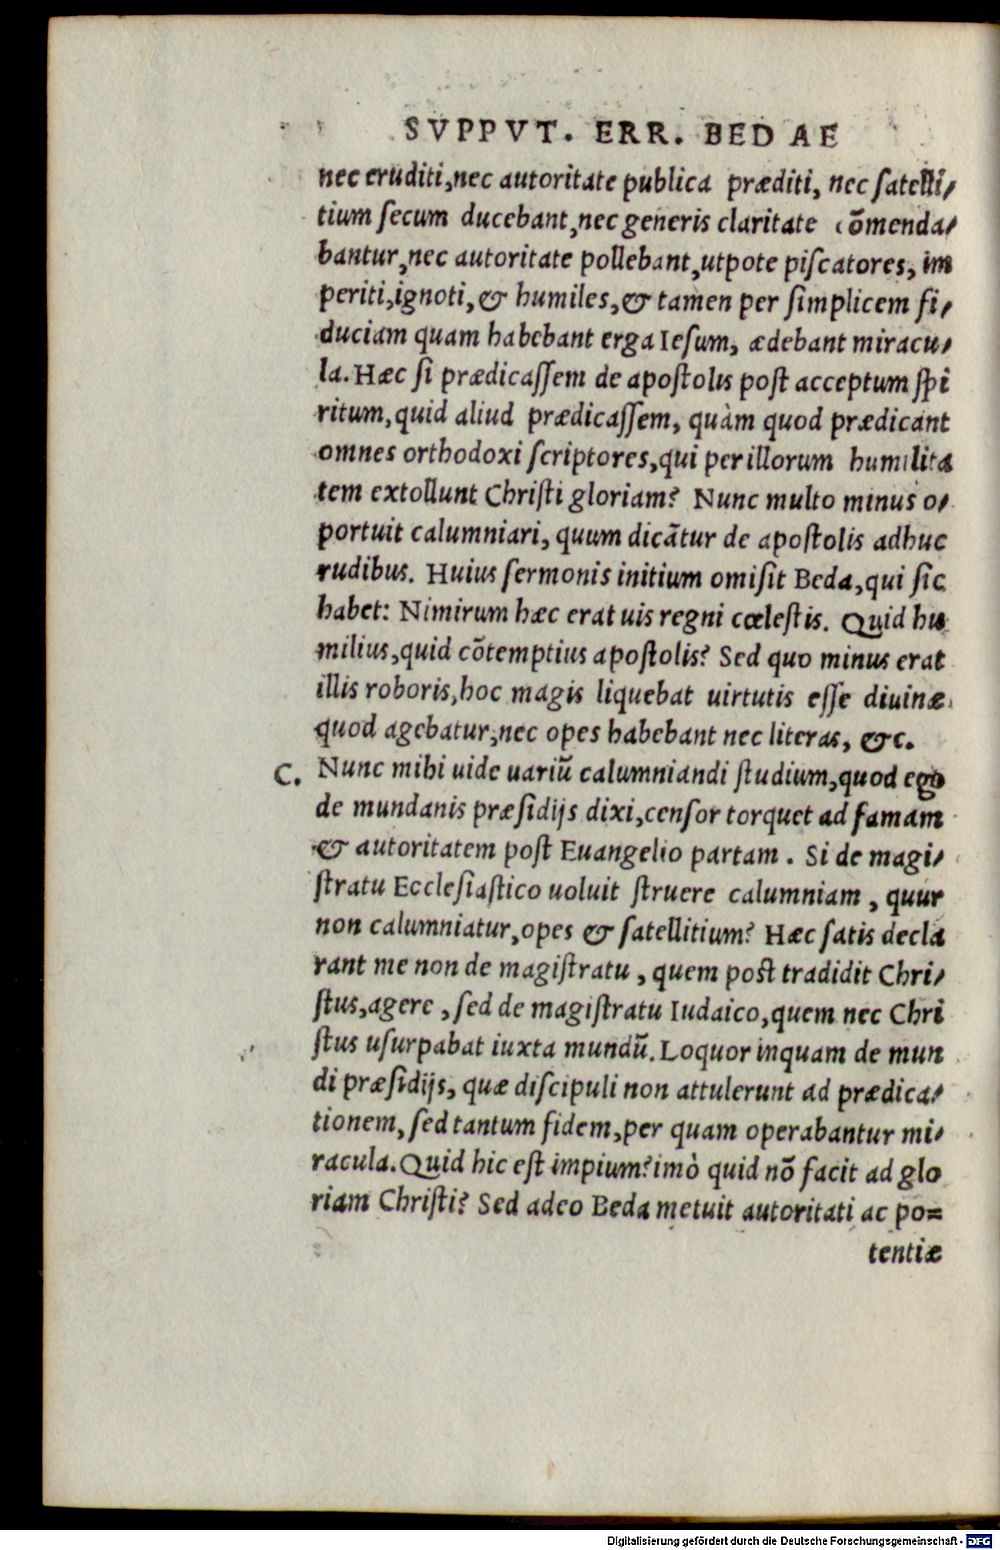 SVPPVT. ERR. BEDAE
nec eruditi, nec autoritate publica præditi, nec satelli/
tium secum ducebant, nec generis claritate cōmenda/
bantur, nec autoritate pollebant, utpote piscatores, im
periti, ignoti, & humiles, & tamen per simplicem fi/
duciam quam habebant erga Iesum, ædebant miracu/
la. Hæc si prædicassem de apostolis post acceptum spi
ritum, quid aliud prædicassem, quàm quod prædicant
omnes orthodoxi scriptores, qui per illorum humilita
tem extollunt Christi gloriam? Nunc multo minus o/
portuit calumniari, quum dicātur de apostolis adhuc
rudibus. Huius sermonis initium omisit Beda, qui sic
habet: Nimirum hæc erat uis regni cœlestis. Quid hu
milius, quid cōtemptius apostolis? Sed quo minus erat
illis roboris, hoc magis liquebat uirtutis esse diuinæ
quod agebatur, nec opes habebant nec literas, &c.
C. Nunc mihi uide uariū calumniandi studium, quod ego
de mundanis præsidijs dixi, censor torquet ad famam
& autoritatem post Euangelio partam. Si de magi/
stratu Ecclesiastico uoluit struere calumniam, quur
non calumniatur, opes & satellitium? Hæc satis decla
rant me non de magistratu, quem post tradidit Chri/
stus, agere, sed de magistratu Iudaico, quem nec Chri
stus usurpabat iuxta mundū. Loquor inquam de mun
di præsidijs, quæ discipuli non attulerunt ad prædica/
tionem, sed tantum fidem, per quam operabantur mi/
racula. Quid hic est impium? imò quid nō facit ad glo
riam Christi? Sed adeo Beda metuit autoritati ac po=
tentiæ
Digitalisierung gefördert durch die Deutsche Forschungsgemeinschaft - DFG